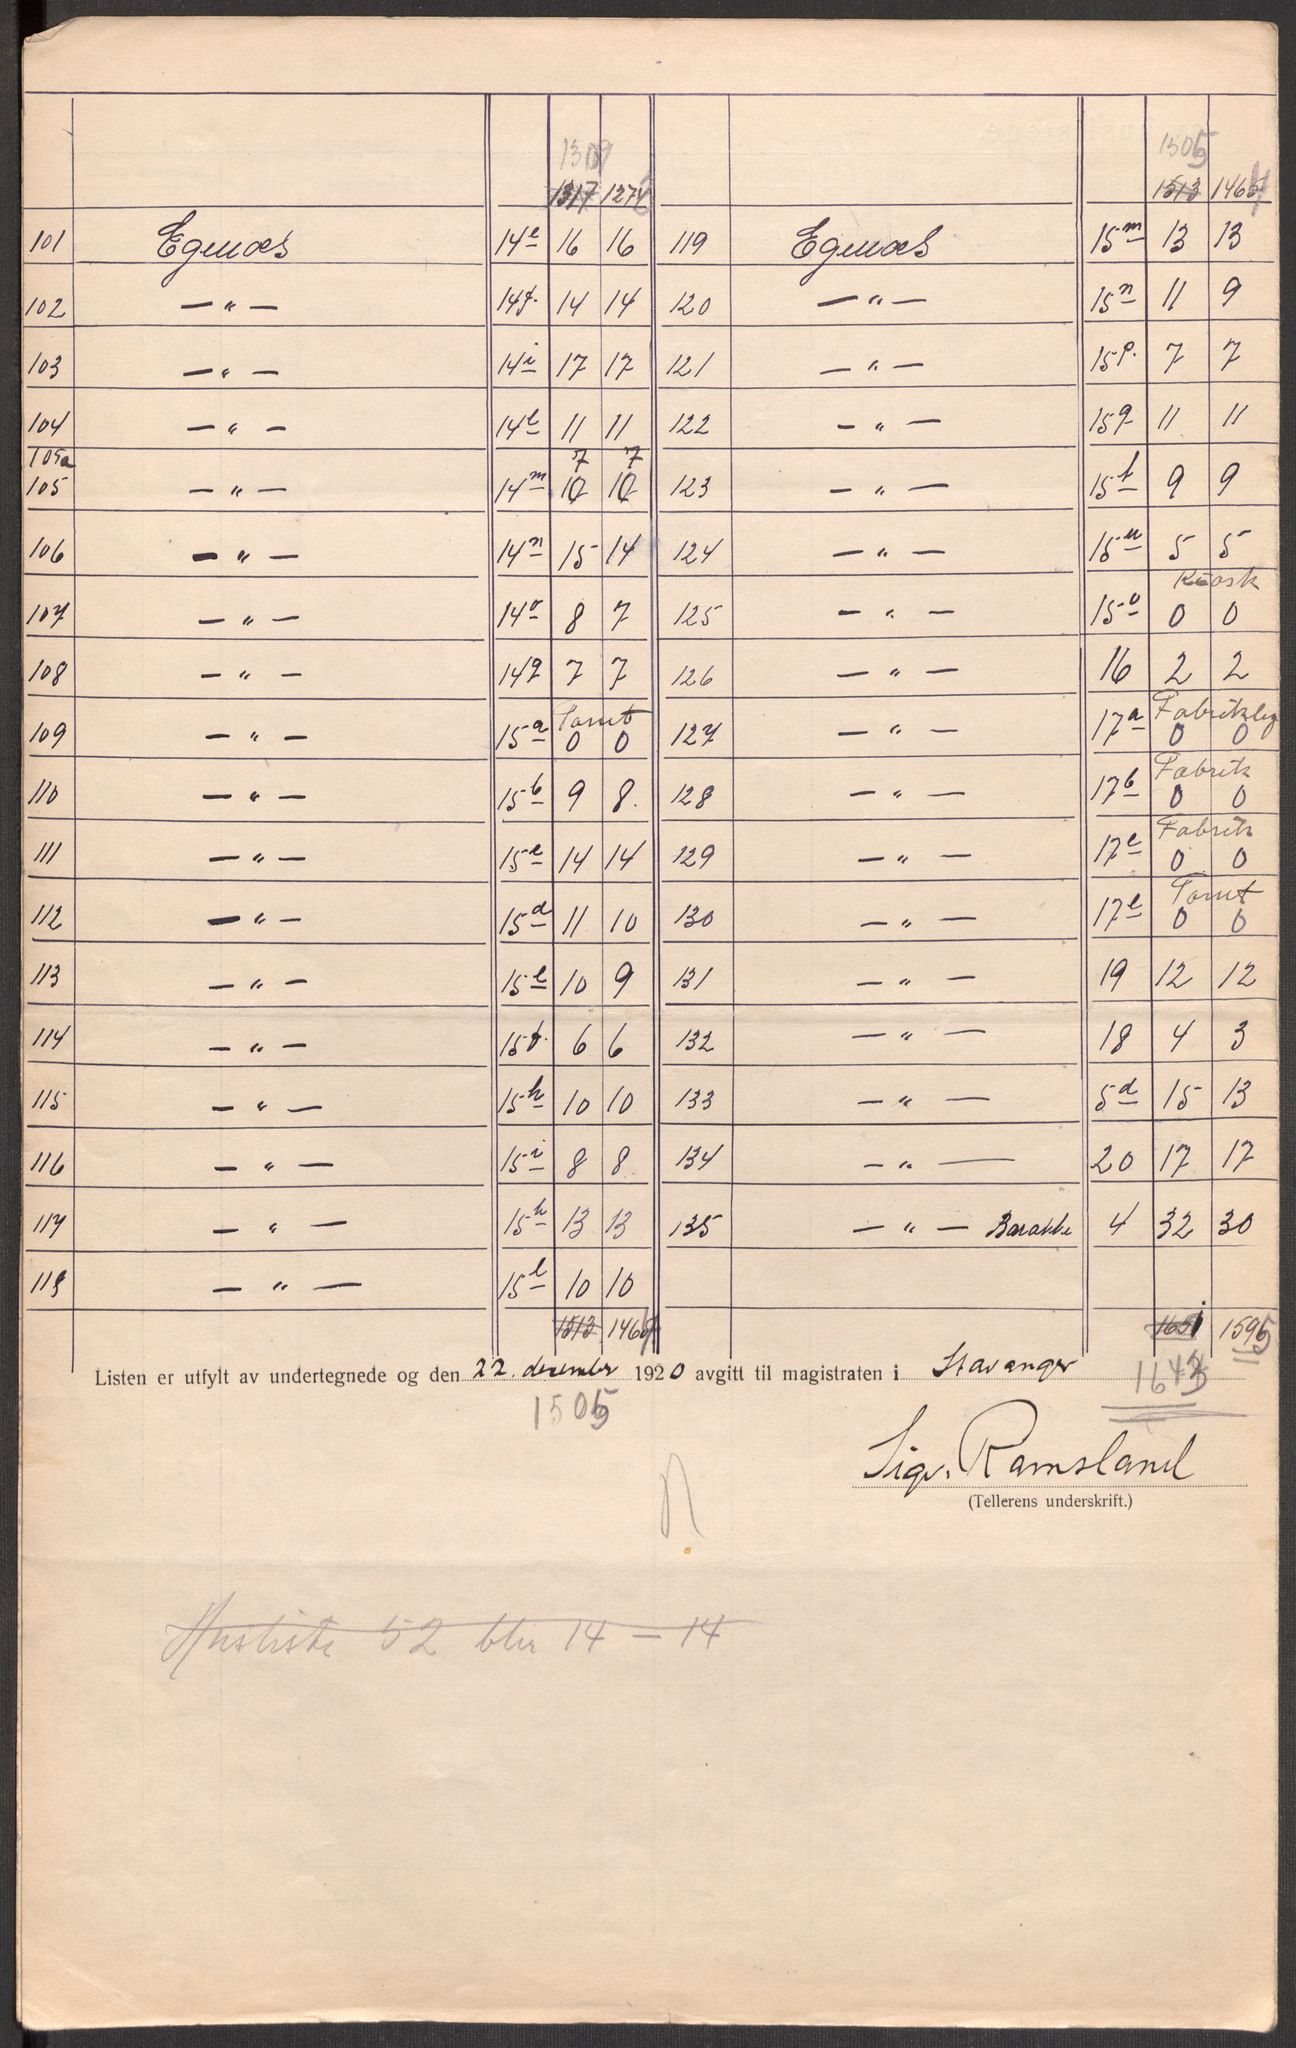 1309 1505
1317 1274 1513 1465
101 Egenæs 14e 16 16 119 Egenæs 15m 13 13
102 — „ — 14f. 14 14 120 — „ — 15n 11 9
103 — „ — 14i 17 17 121 — „ — 15p. 7 7
104 — „ — 14l 11 11 122 — „ — 15q 11 11
105a 7 7
105 — „ — 14m 10 10 123 — „ — 15t 9 9
106 — „ — 14n 15 14 124 — „ — 15u 5 5
Kiosk
107 — „ — 14o 8 7 125 — „ — 15v 0 0
108 — „ — 14q 7 7 126 — „ — 16 2 2
Tomt Fabriklag
109 — „ — 15a 0 0 127 — „ — 17a 0 0
Fabrik
110 — „ — 15b 9 8. 128 — „ — 17b 0 0
Fabrik
111 — „ — 15c 14 14 129 — „ — 17c 0 0
Tomt
112 — „ — 15d 11 10 130 — „ — 17e 0 0
113 — „ — 15e 10 9 131 — „ — 19 12 12
114 — „ — 15f. 6 6 132 — „ — 18 4 3
115 — „ — 15h 10 10 133 — „ — 5d 15 13
116 — „ — 15i 8 8 134 — „ — 20 17 17
117 — „ — 15k 13 13 135 — „ — Barakke 4 32 30
118 — „ — 15l 10 10
1513 146 1651 1595
Listen er utfylt av undertegnede og den 22. desember 1920 avgitt til magistraten i Stavanger
1505 1643
Sigv. Ramsland
(Tellerens underskrift.)
Husliste 52 blir 14 — 14